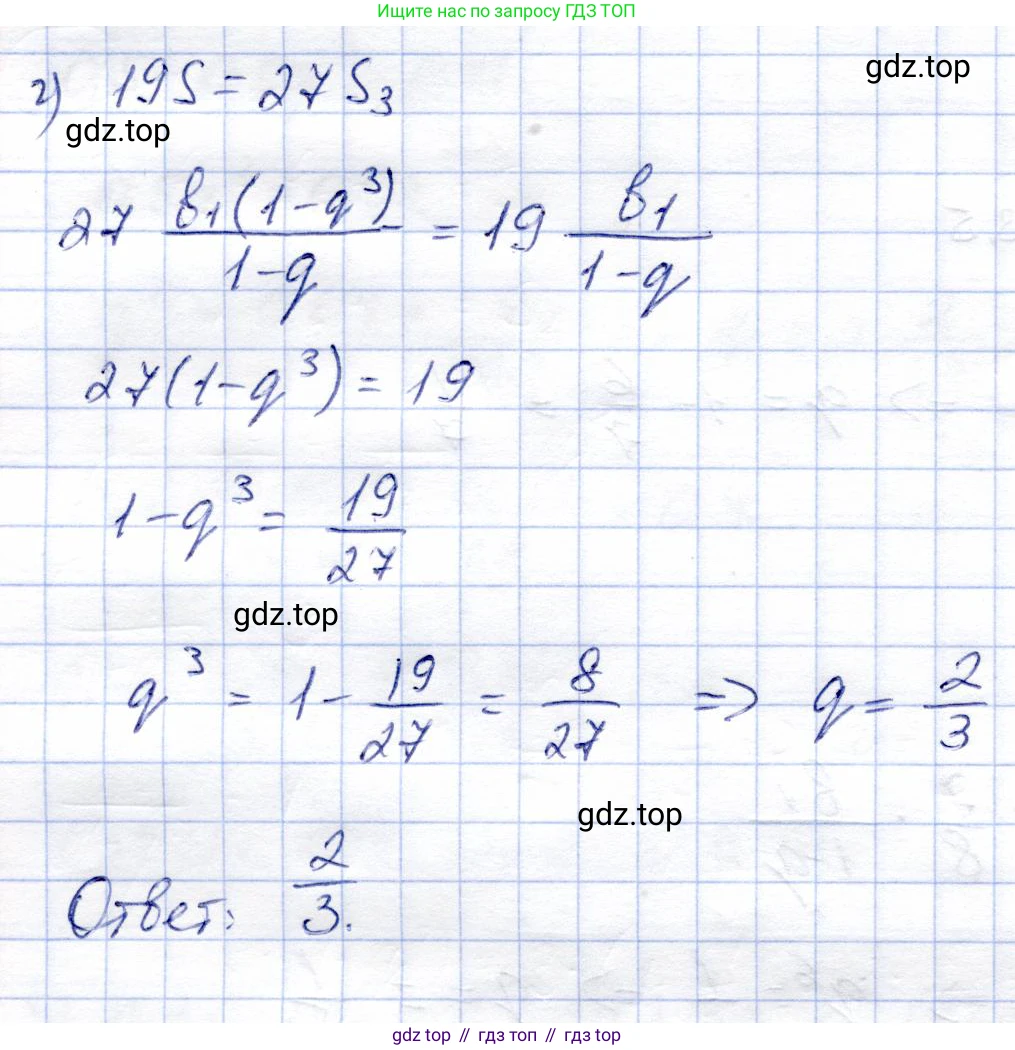 Ищите нас по запросу ГДЗ ТОП
г) 19S = 27 S₃
gdz.top
gdz.top
27 b₁(1-q³)/(1-q) = 19 b₁/(1-q)
27(1-q³) = 19
1-q³ = 19/27
gdz.top
q³ = 1 - 19/27 = 8/27 => q = 2/3
gdz.top
Ответ: 2/3.
gdz top // гдз топ // gdz top